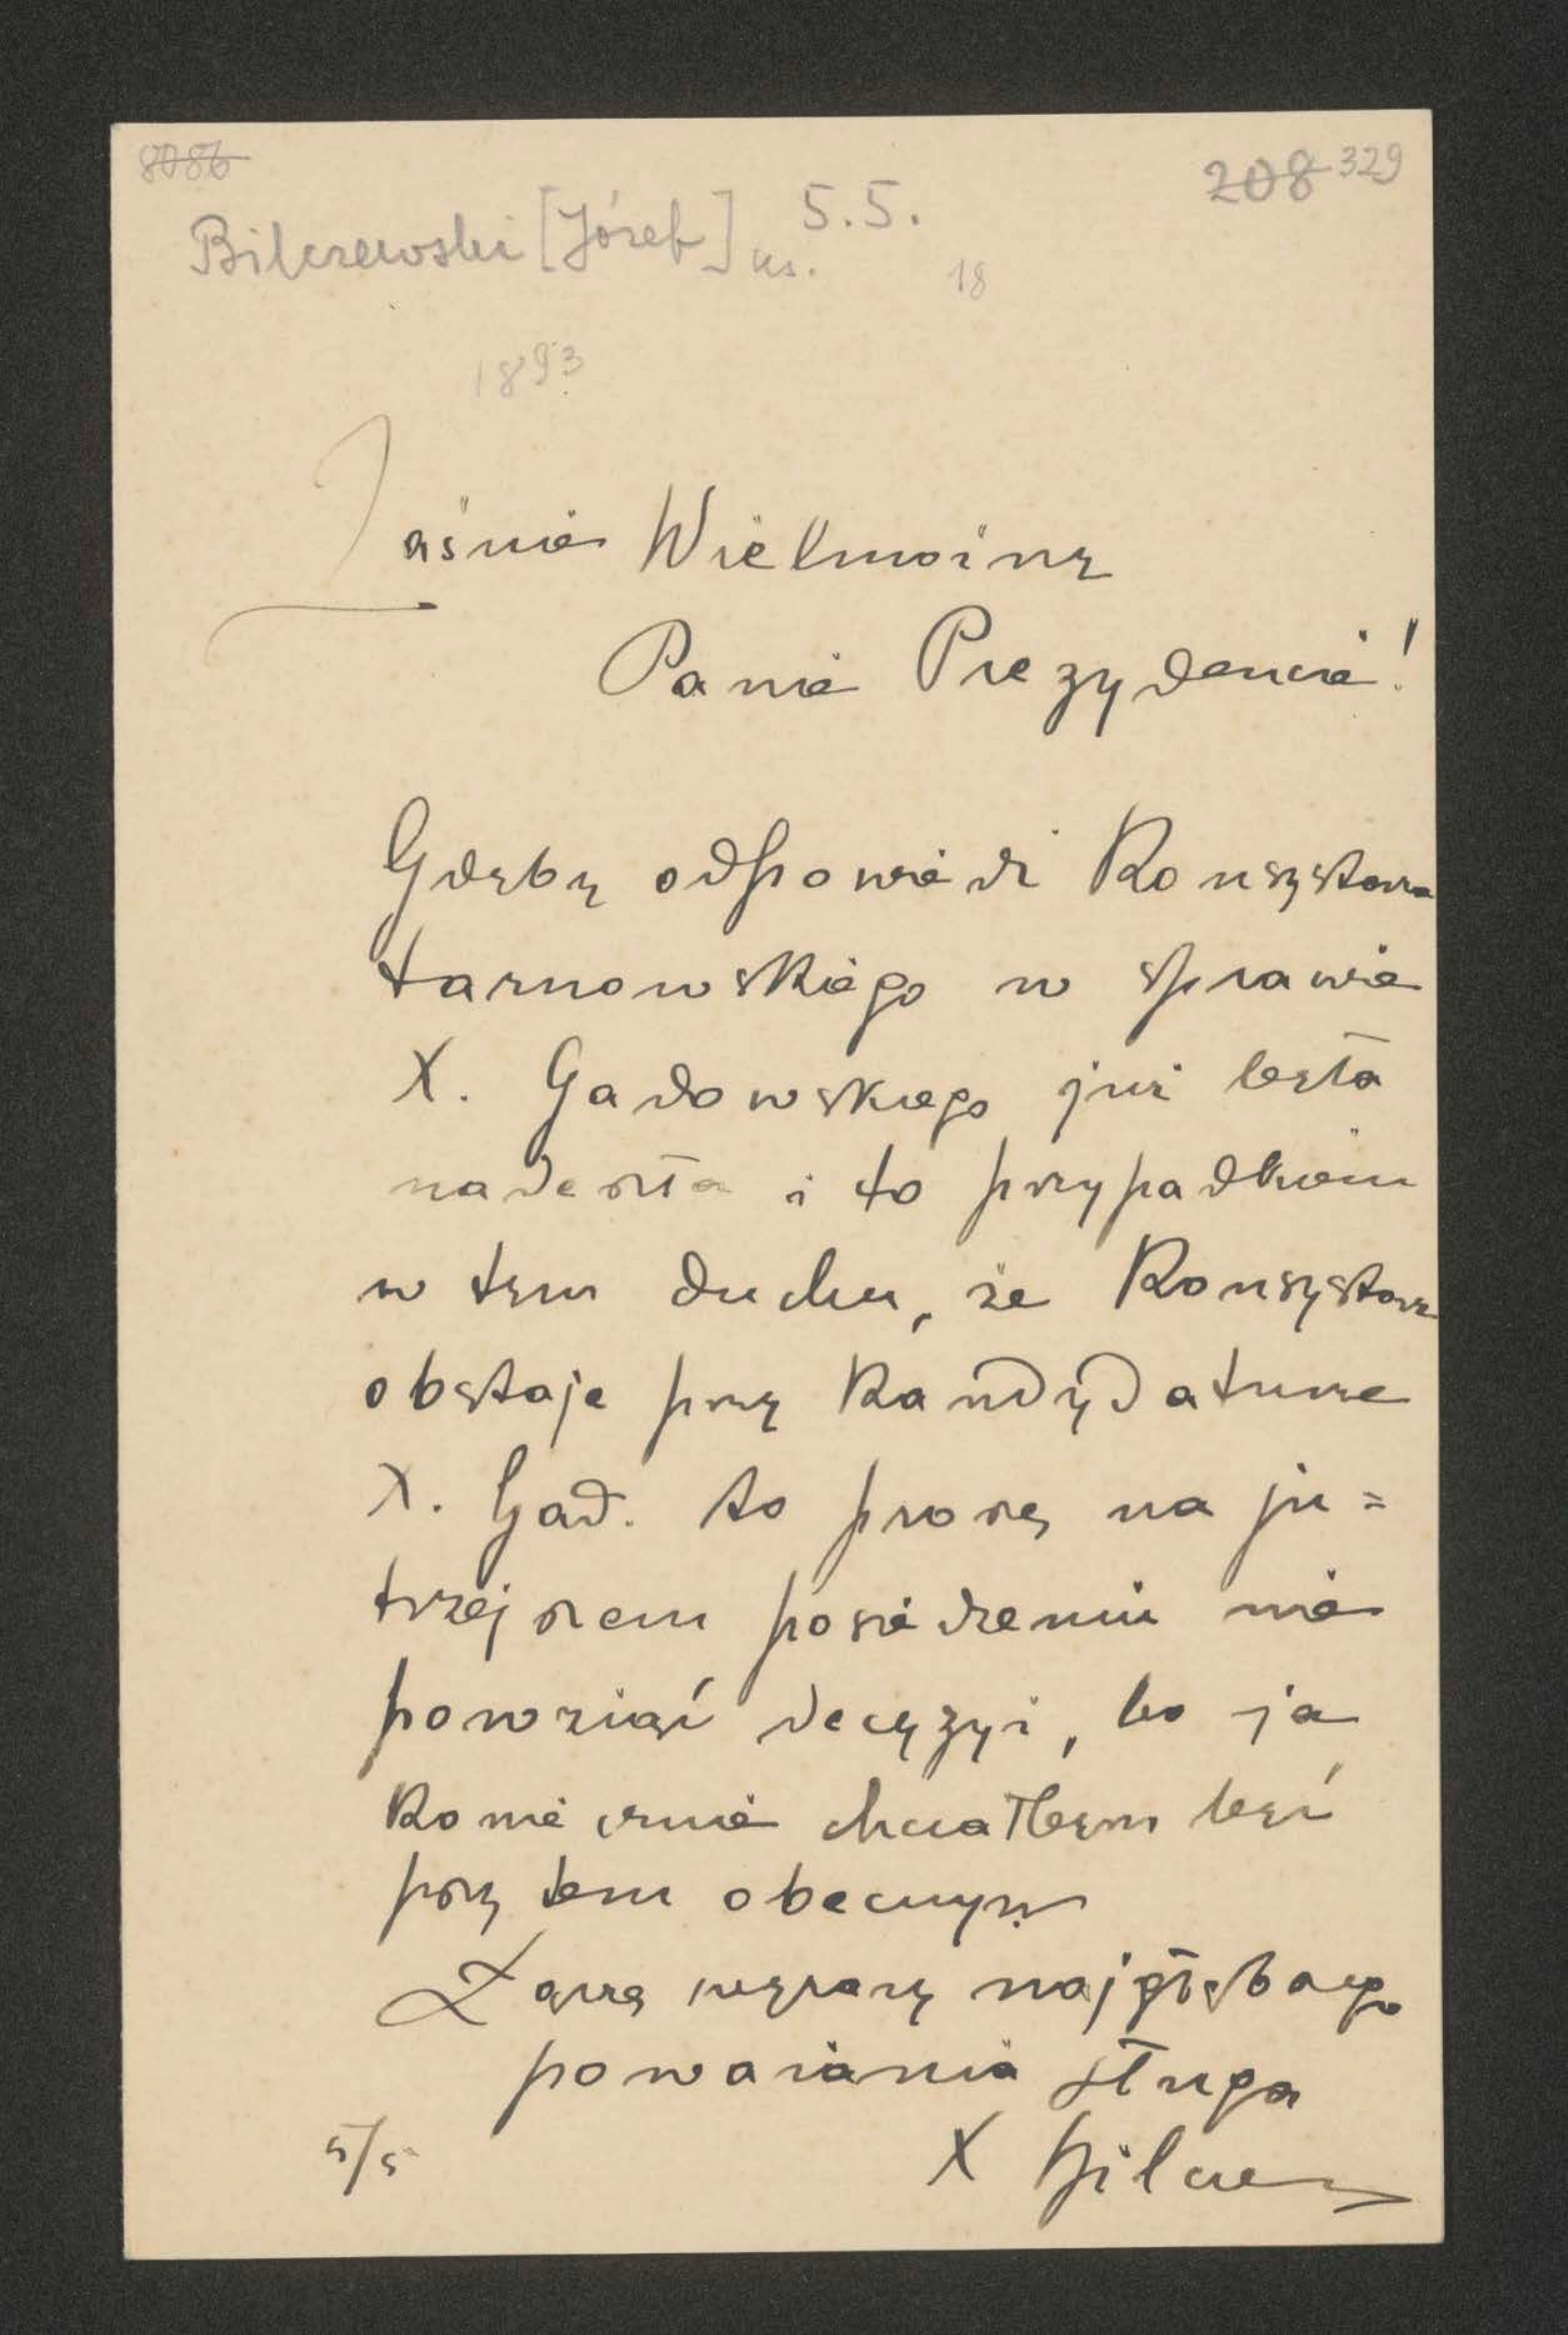 8086
208 329
Bilczewski [Józef] ks. 5.5.
18
1893
Jaśnie Wielmożny
Panie Prezydencie!
Gdyby odpowiedź Konsystorza
tarnowskiego w sprawie
X. Gadowskiego już była
nadeszła i to przypadkiem
w tym duchu, że Konsystorz
obstaje przy kandydaturze
X. Gad. to proszę na ju=
trzejszem posiedzeniu nie
powziąć decyzyi, bo ja
koniecznie chciałbym być
przy tem obecnym
Łączę wyrazy najgłębszego
poważania sługa
5/5 X Bilczew